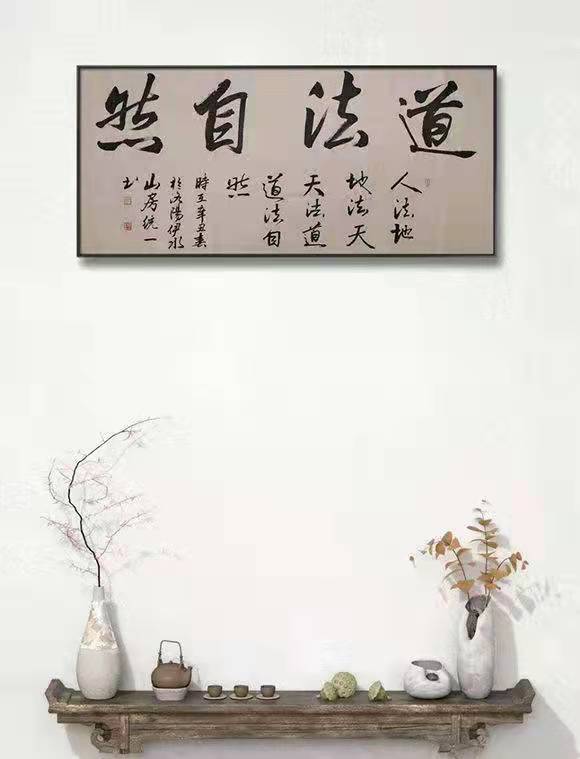 道法自然
人法地
地法天
天法道
道法自
然
時在辛丑春
於洛陽伊水
山房统一
书